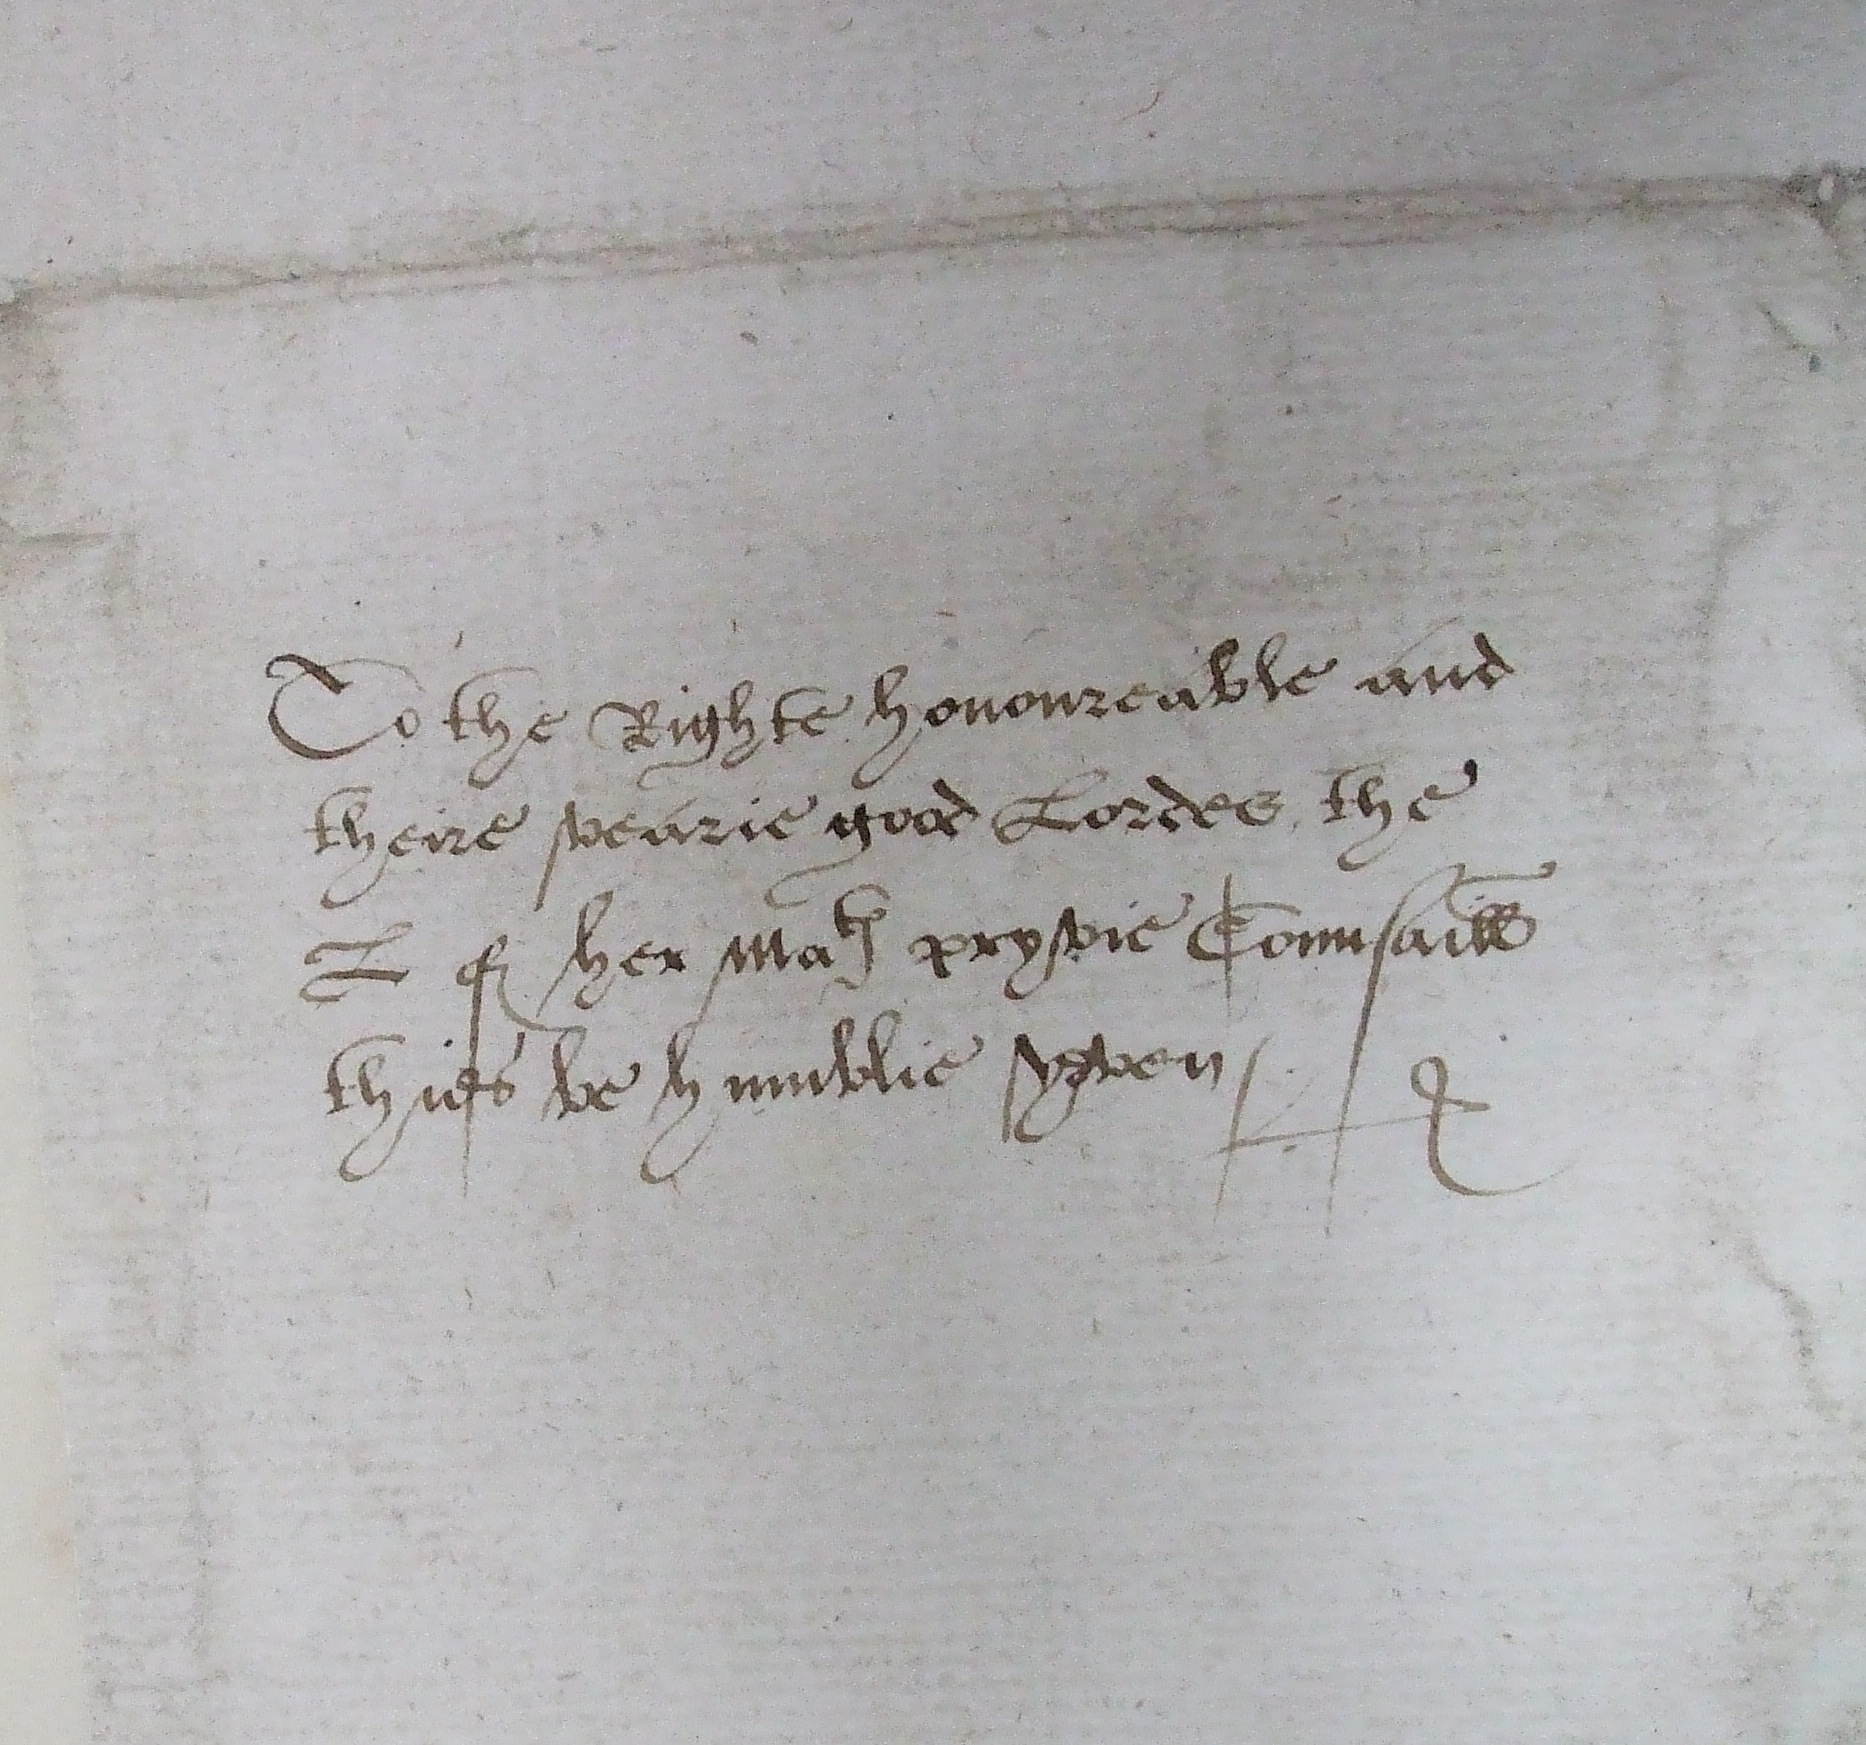 To the Righte honoureable and
theire vearie good Lordes, the
L of her Matꝭ pryvie Counsaill
thies be humblie gyven